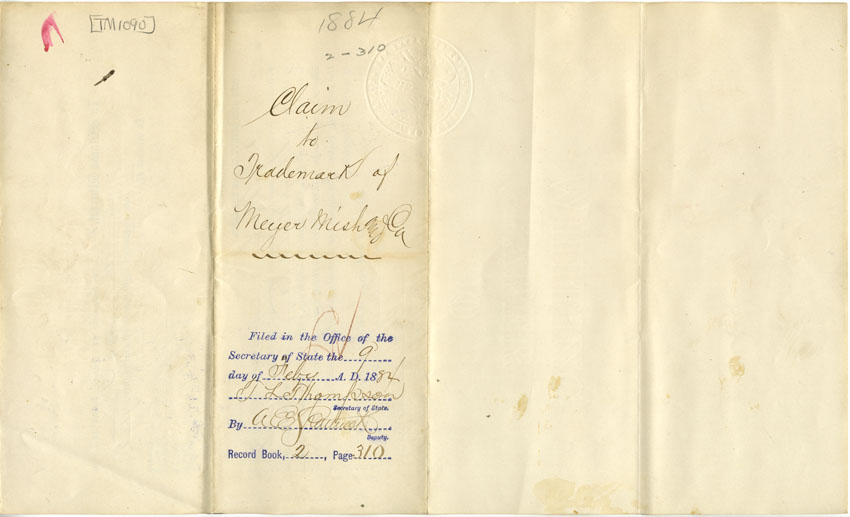 [TM1090]
1884
2-310
Claim
to
Trademark of
Meyer Mish & Co
Filed in the Office of the
Secretary of State the 9
day of Feby A. D. 1884
L Thompson
Secretary of State.
By A
Deputy.
Record Book, 2, Page 310